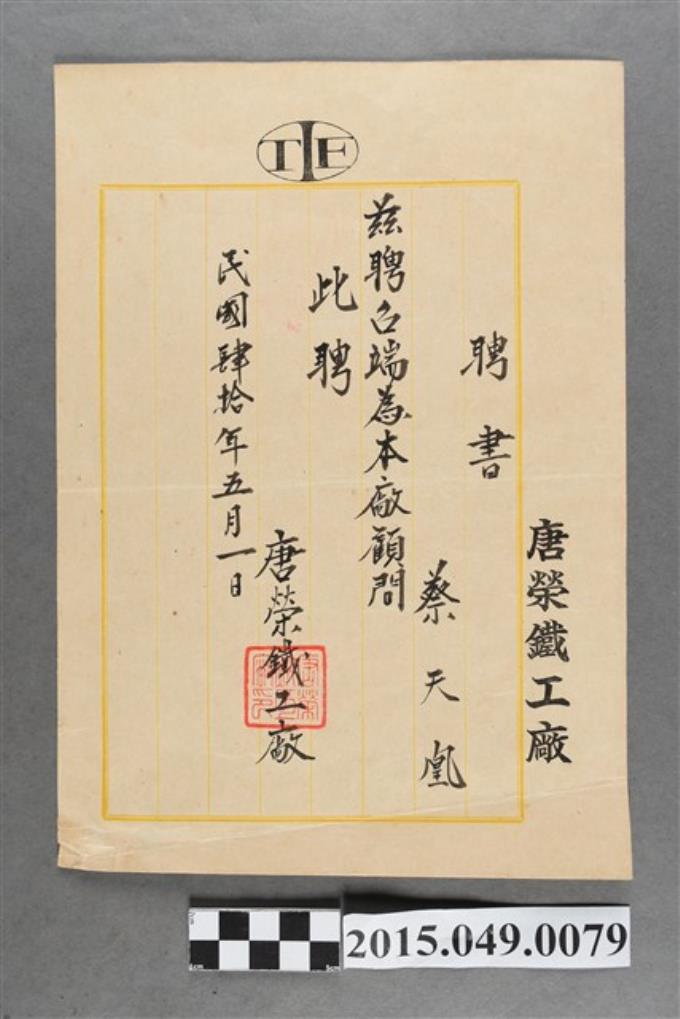 TIE
唐榮鐵工廠
聘書
蔡天凰
茲聘台端為本廠顧問
此聘
唐榮鐵工廠
民國肆拾年五月一日
2015.049.0079